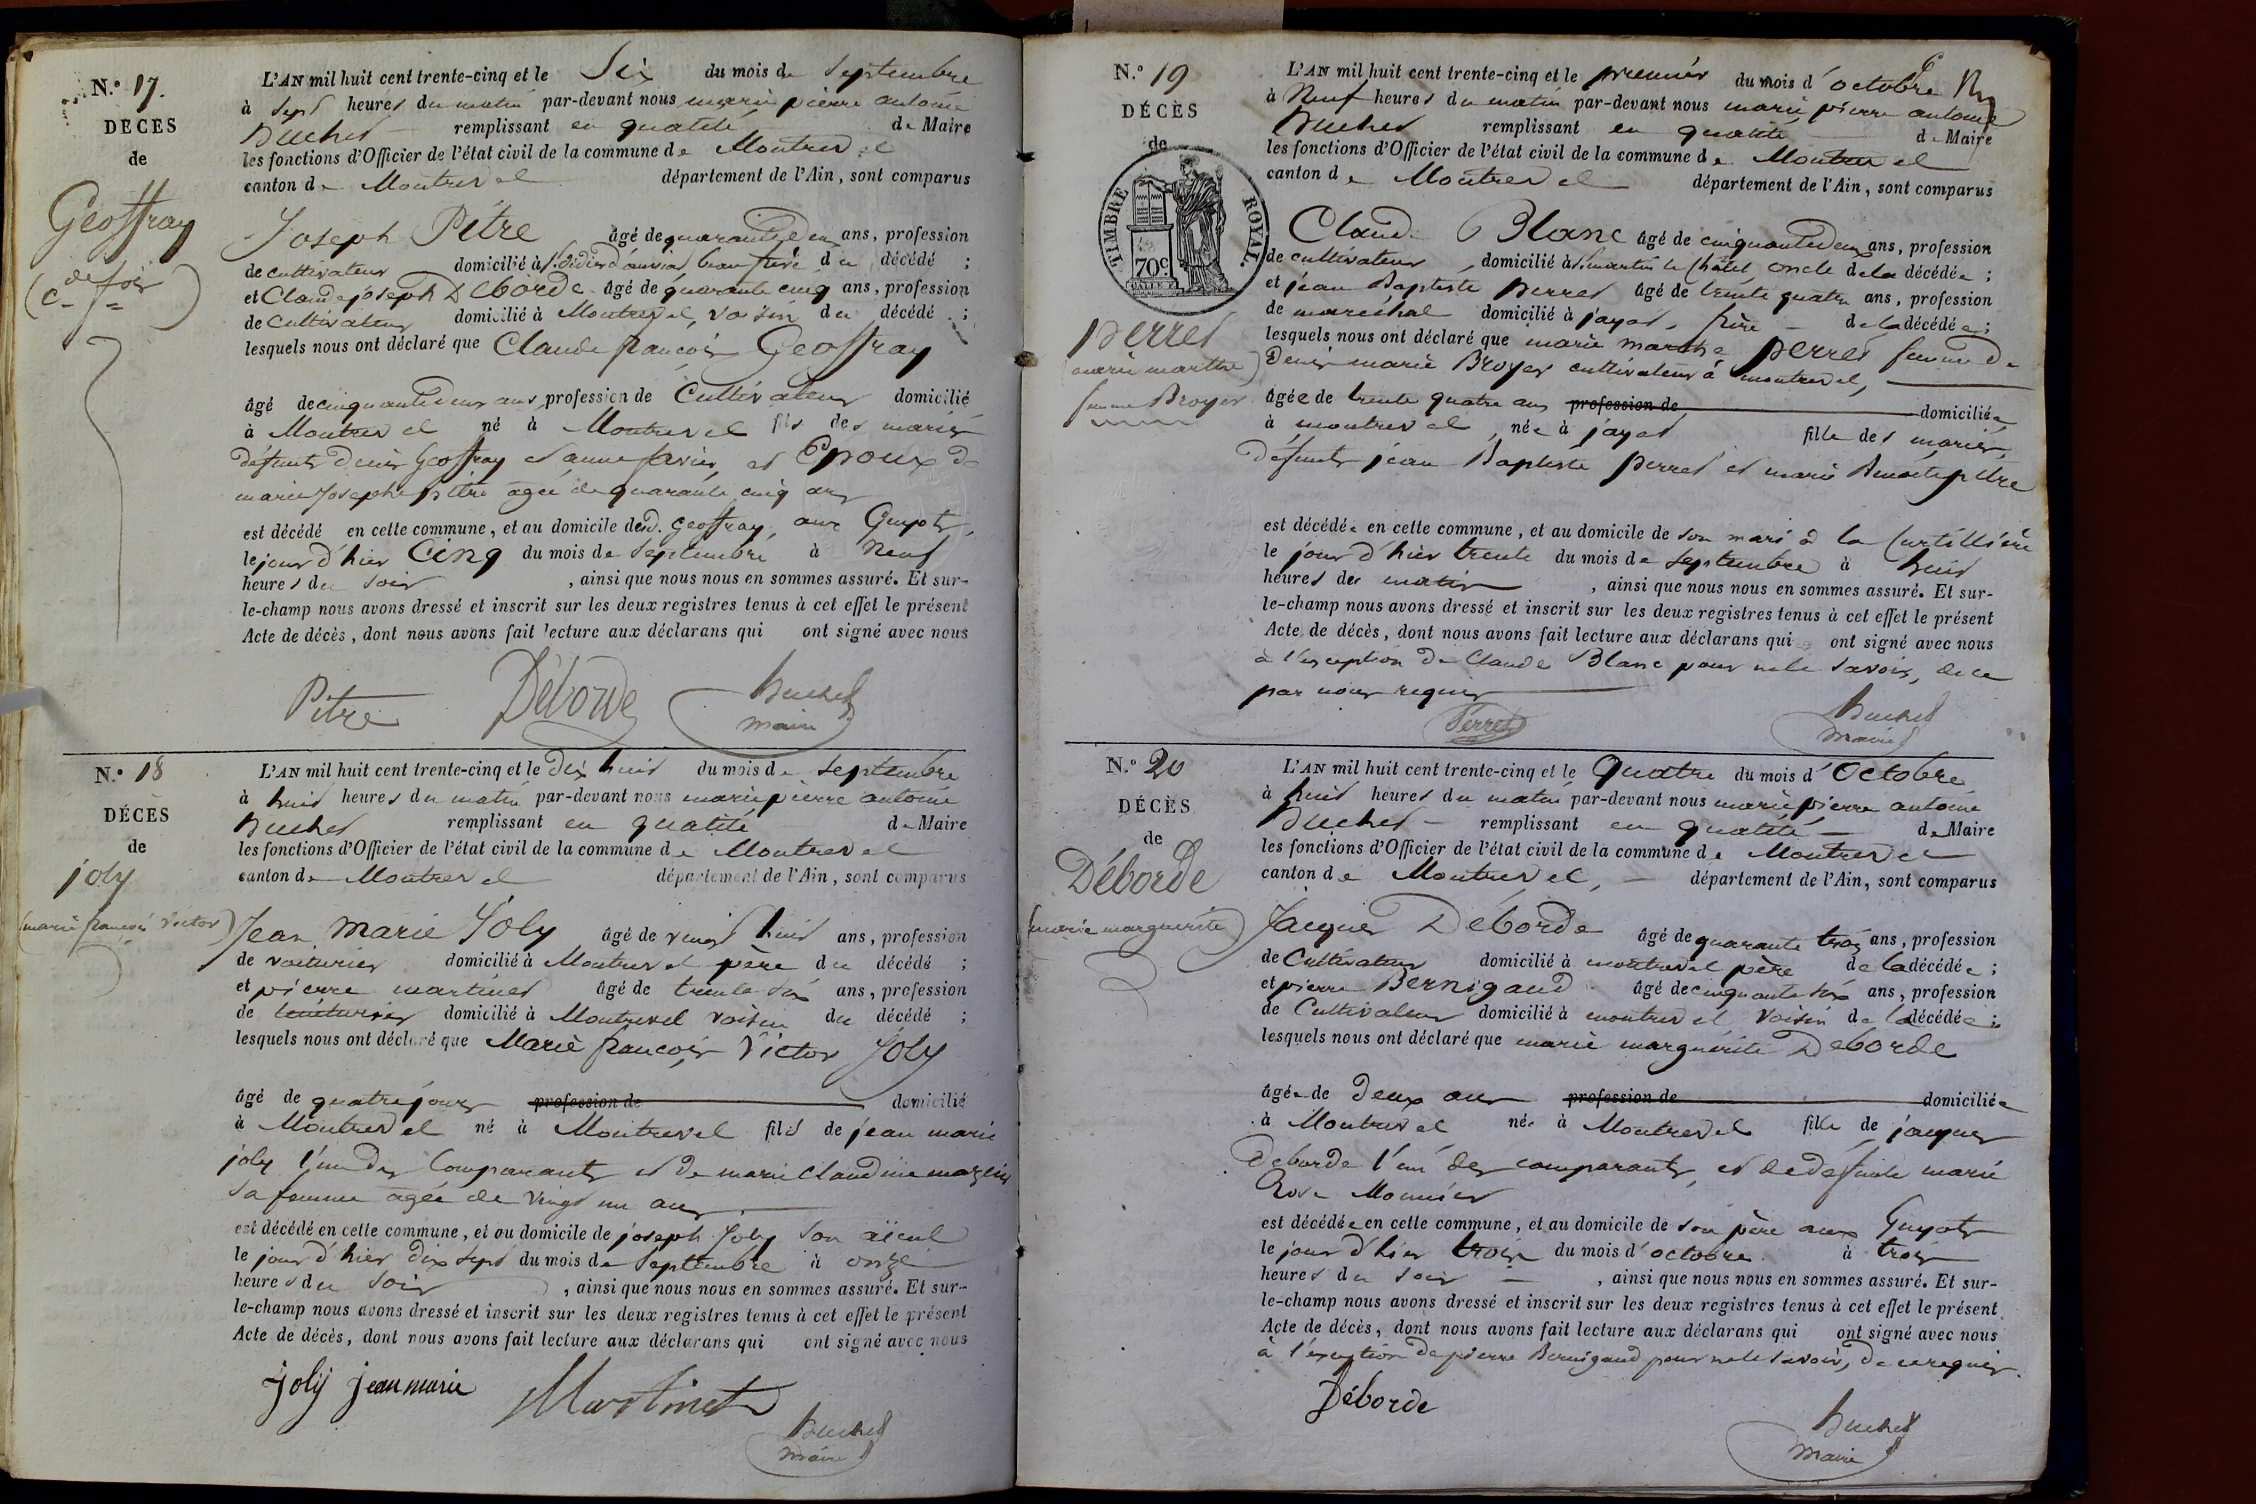 N.º 17.
DÉCÈS
de
Geoffray
L'AN mil huit cent trente-cinq et le Six du mois de Septembre
à sept heures du matin par-devant nous marie pierre antoine
Buchet remplissant en qualité de Maire
les fonctions d'Officier de l'état civil de la commune de Montrevel
canton de Montrevel département de l'Ain, sont comparus
Joseph Pitre âgé de quarante deux ans, profession
de cultivateur domicilié à St. didier d'aussiat, beau frère du décédé ;
et Claude joseph Déborde âgé de quarante cinq ans, profession
de Cultivateur domicilié à Montrevel, voisin du décédé ;
lesquels nous ont déclaré que Claude françois Geoffray
âgé de cinquante deux ans, profession de Cultivateur domicilié
à Montrevel né à Montrevel fils des mariés
défunts Denis Geoffray et anne favier, et Epoux de
marie Josephe pitre agée de quarante cinq ans
est décédé en cette commune, et au domicile dud. Geoffray, aux Guyots,
le jour d'hier Cinq du mois de Septembre à Neuf
heures du soir , ainsi que nous nous en sommes assuré. Et sur-
le-champ nous avons dressé et inscrit sur les deux registres tenus à cet effet le présent
Acte de décès, dont nous avons fait lecture aux déclarans qui ont signé avec nous
Pitre Déborde Buchet
maire
N.º 18
DÉCÈS
de
joly
(marie françois victor)
L'AN mil huit cent trente-cinq et le dix huit du mois de Septembre
à huit heures du matin par-devant nous marie pierre antoine
Buchet remplissant en qualité de Maire
les fonctions d'Officier de l'état civil de la commune de Montrevel
canton de Montrevel département de l'Ain, sont comparus
Jean Marie Joly âgé de vingt huit ans, profession
de voiturier domicilié à Montrevel père du décédé ;
et pierre martinet âgé de trente six ans, profession
de teinturier domicilié à Montrevel voisin du décédé ;
lesquels nous ont déclaré que Marie françois Victor Joly
âgé de quatre jours profession de domicilié
à Montrevel né à Montrevel fils de jean marie
joly l'un des Comparants et de marie Claudine
sa femme agée de vingt un ans
est décédé en cette commune, et au domicile de joseph Joly son aïeul
le jour d'hier dix sept du mois de Septembre à onze
heures du soir , ainsi que nous nous en sommes assuré. Et sur-
le-champ nous avons dressé et inscrit sur les deux registres tenus à cet effet le présent
Acte de décès, dont nous avons fait lecture aux déclarans qui ont signé avec nous
joly jean marie Martinet
Buchet
maire
N.º 19
DÉCÈS
de
TIMBRE ROYAL.
70c.
perret
(marie marthe)
femme Broyer
L'AN mil huit cent trente-cinq et le premier du mois d'octobre
à Neuf heures du matin par-devant nous marie pierre antoine
Buchet remplissant en qualité de Maire
les fonctions d'Officier de l'état civil de la commune de Montrevel
canton de Montrevel département de l'Ain, sont comparus
Claude Blanc âgé de cinquante deux ans, profession
de cultivateur, domicilié à St. martin le Châtel, oncle de la décédée ;
et jean Baptiste perret âgé de trente quatre ans, profession
de maréchal domicilié à jayat, frère de la décédée ;
lesquels nous ont déclaré que marie marthe perret femme de
Denis marie Broyer cultivateur à montrevel,
âgée de trente quatre ans profession de domiciliée
à montrevel, née à jayat fille des mariés
défunts jean Baptiste perret et marie Benoite pitre
est décédée en cette commune, et au domicile de son mari à la Curtillière
le jour d'hier trente du mois de Septembre à huit
heures du matin , ainsi que nous nous en sommes assuré. Et sur-
le-champ nous avons dressé et inscrit sur les deux registres tenus à cet effet le présent
Acte de décès, dont nous avons fait lecture aux déclarans qui ont signé avec nous
à l'exception de Claude Blanc pour ne le savoir, de ce
par nous requis
Perret Buchet
maire
N.º 20
DÉCÈS
de
Déborde
(marie marguerite)
L'AN mil huit cent trente-cinq et le Quatre du mois d'Octobre
à huit heures du matin par-devant nous marie pierre antoine
Buchet remplissant en qualité de Maire
les fonctions d'Officier de l'état civil de la commune de Montrevel
canton de Montrevel, département de l'Ain, sont comparus
Jacques Déborde âgé de quarante trois ans, profession
de Cultivateur domicilié à montrevel père de la décédée ;
et pierre Bernigaud âgé de cinquante six ans, profession
de Cultivateur domicilié à montrevel voisin de la décédée ;
lesquels nous ont déclaré que marie marguerite Déborde
âgée de deux ans profession de domiciliée
à Montrevel née à Montrevel fille de jacques
Deborde l'un des comparants, et de défunte marie
Rose Monnier
est décédée en cette commune, et au domicile de son père aux Guyots
le jour d'hier trois du mois d'octobre à trois
heures du soir , ainsi que nous nous en sommes assuré. Et sur-
le-champ nous avons dressé et inscrit sur les deux registres tenus à cet effet le présent
Acte de décès, dont nous avons fait lecture aux déclarans qui ont signé avec nous
à l'exception de pierre Bernigaud pour ne le savoir, de ce requis.
Déborde
Buchet
Maire